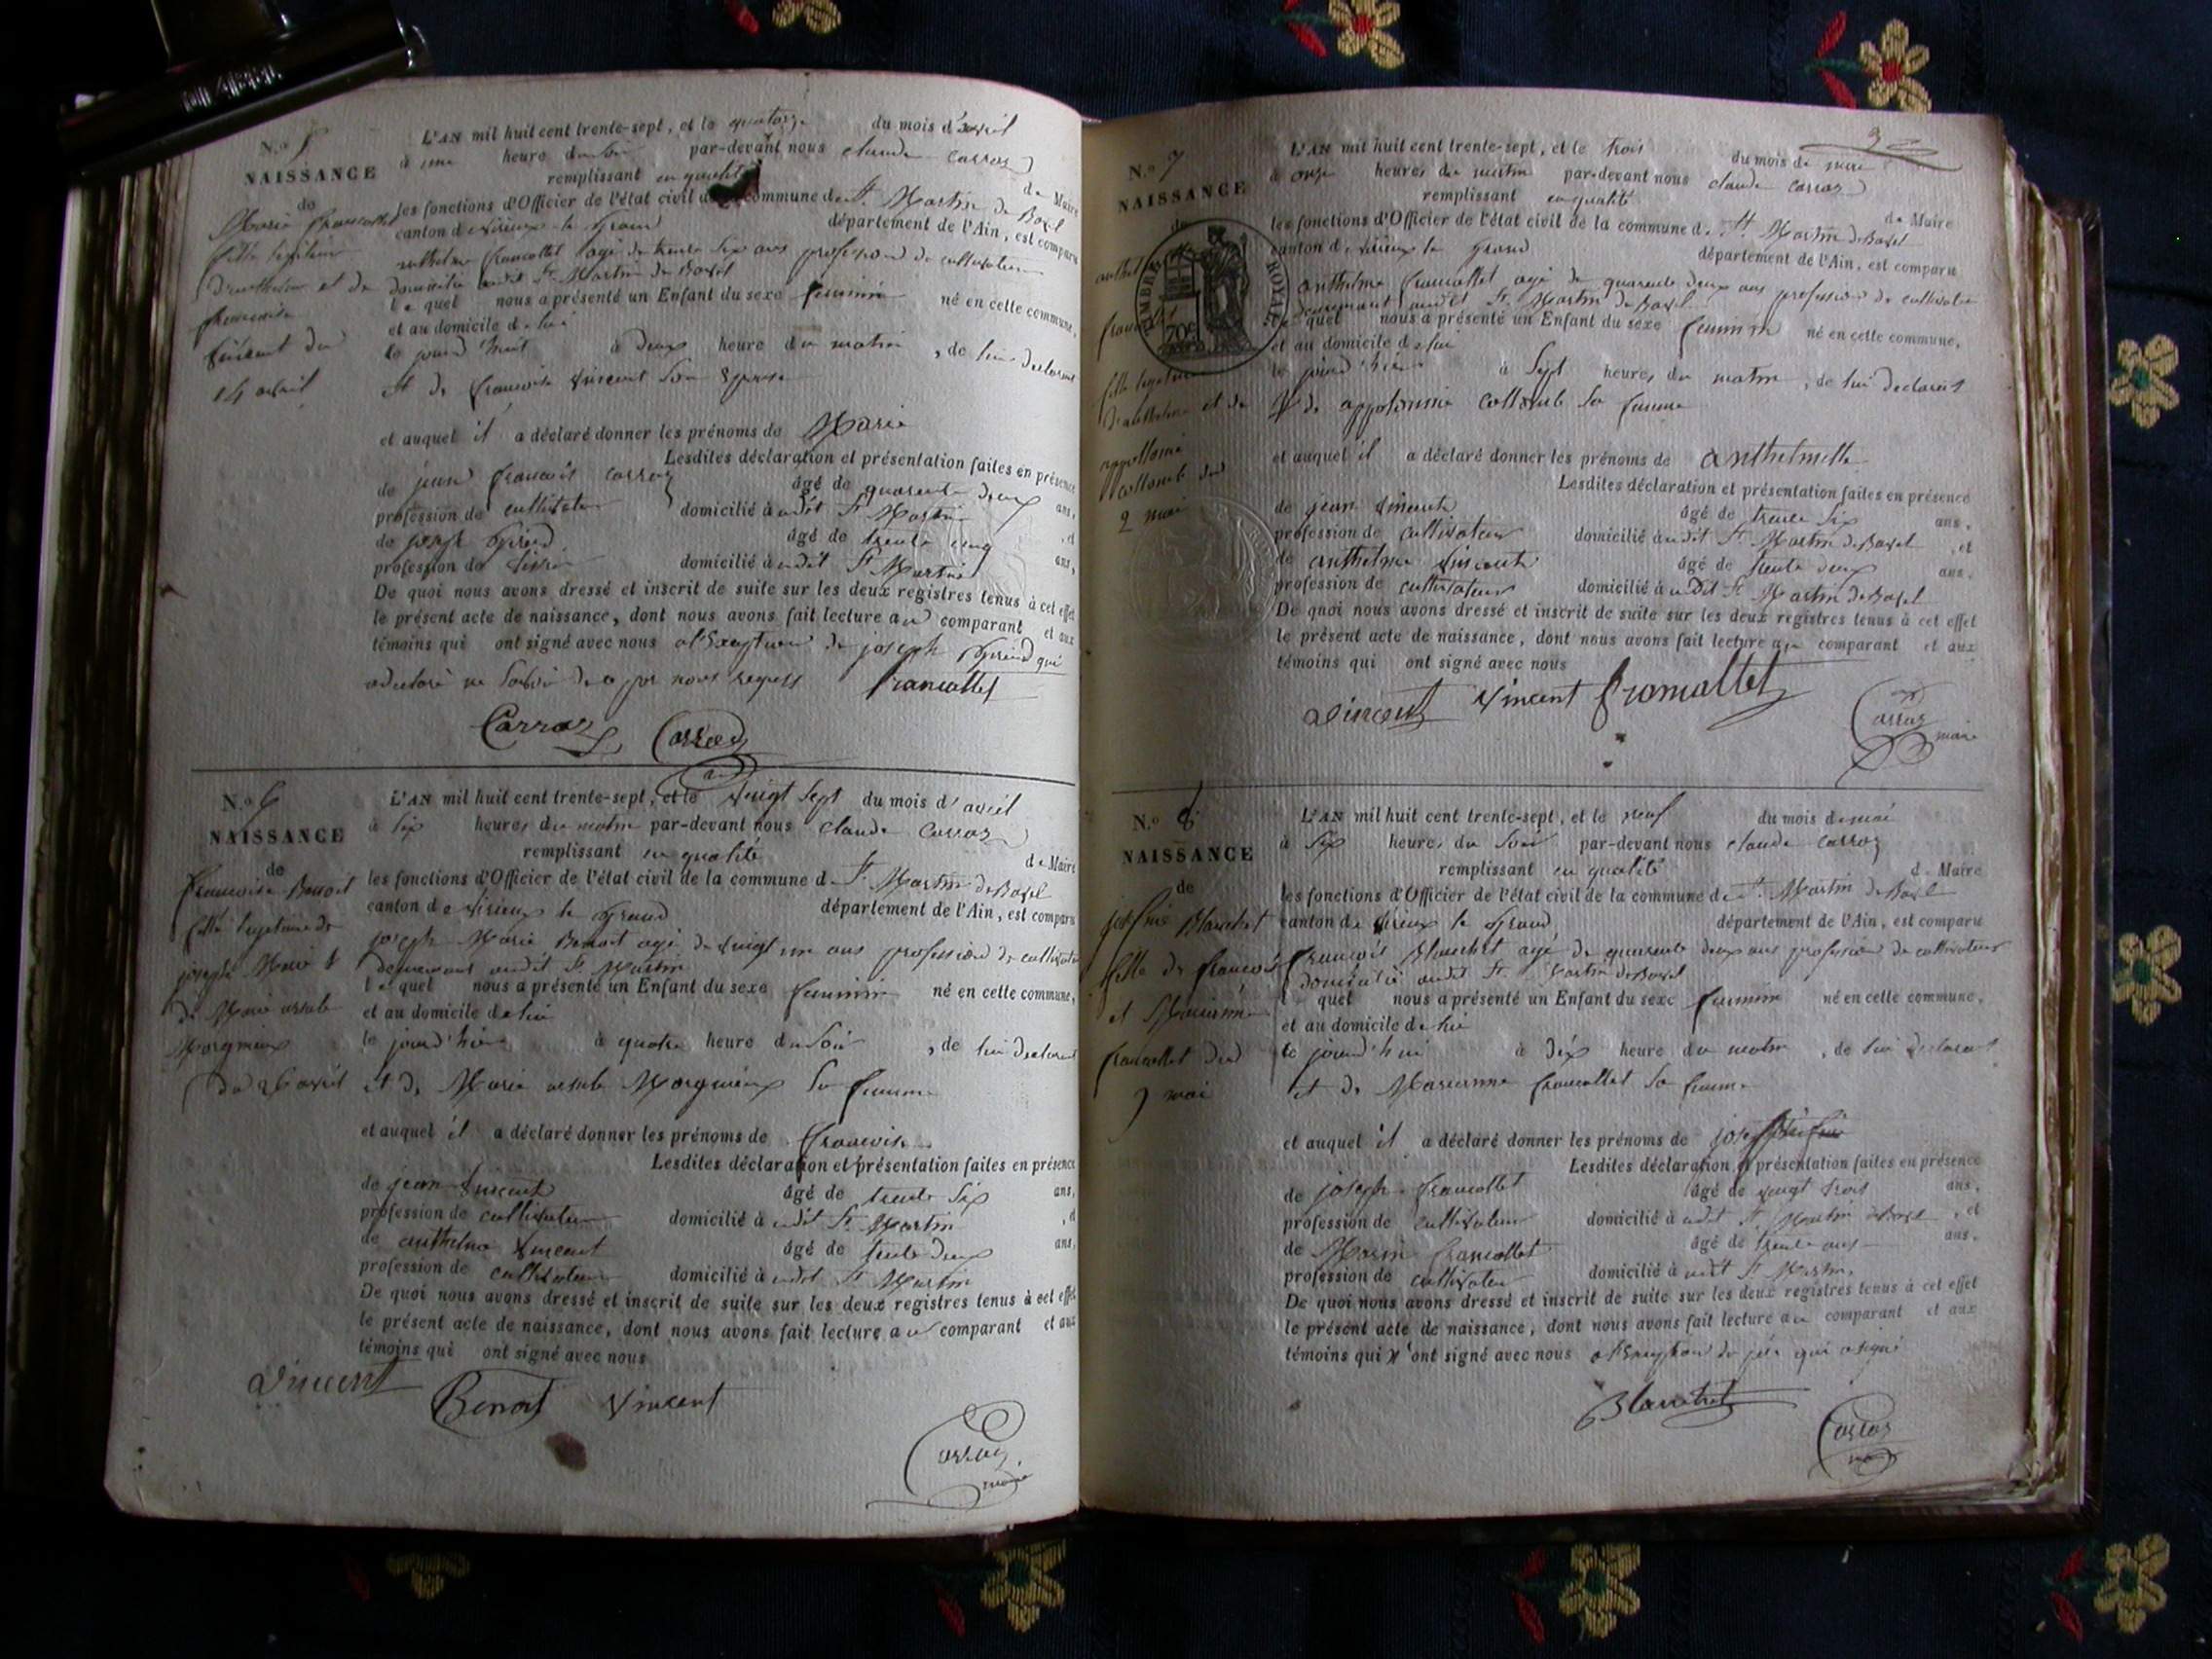 N.º 5
NAISSANCE
de
Marie francollet
fille légitime
d'anthelme et de
francoise
Vincent du
14 avril
L'AN mil huit cent trente-sept, et le quatorze du mois d'avril
à une heure du soir par-devant nous claude Carroz
remplissant en qualité de Maire
les fonctions d'Officier de l'état civil de la commune de St. Martin de Bavel
canton de virieux le Grand département de l'Ain, est comparu
anthelme francollet agé de trente six ans profession de cultivateur
domicilié audit St. Martin de Bavel
lequel nous a présenté un Enfant du sexe feminin né en cette commune,
et au domicile de lui
le jourd'huit à deux heure du matin, de lui declarant
et de francoise vincent son Epouse
et auquel il a déclaré donner les prénoms de Marie
Lesdites déclaration et présentation faites en présence
de jean francois Carroz âgé de quarente deux ans,
profession de cultivateur domicilié à udit St. Martin, et
de joseph Grind âgé de trente cinq ans,
profession de domicilié à udit St. Martin
De quoi nous avons dressé et inscrit de suite sur les deux registres tenus à cet effet
le présent acte de naissance, dont nous avons fait lecture au comparant et aux
témoins qui ont signé avec nous a l'Exception de joseph Grind qui
a declaré ne Savoir de ce par nous requis francollet
Carroz Carroz
N.º 6
NAISSANCE
de
francoise Benoit
fille legitime de
joseph Marie et
de Marie ursule
Morgnieux
du 26 avril
L'AN mil huit cent trente-sept, et le vingt sept du mois d'avril
à six heures du matin par-devant nous claude Carroz
remplissant en qualité de Maire
les fonctions d'Officier de l'état civil de la commune de St. Martin de Bavel
canton de virieux le Grand département de l'Ain, est comparu
joseph Marie Benoit agé de vingt un ans profession de cultivateur
demeurant audit St. Martin
lequel nous a présenté un Enfant du sexe feminin né en cette commune,
et au domicile de lui
le jourd'hier à quatre heure du soir, de lui declarant
et de Marie ursule Morgnieux sa femme
et auquel il a déclaré donner les prénoms de francoise
Lesdites déclaration et présentation faites en présence
de jean vincent âgé de trente six ans,
profession de cultivateur domicilié à udit St. Martin, et
de anthelme vincent âgé de trente deux ans,
profession de cultivateur domicilié à udit St. Martin
De quoi nous avons dressé et inscrit de suite sur les deux registres tenus à cet effet
le présent acte de naissance, dont nous avons fait lecture au comparant et aux
témoins qui ont signé avec nous
Vincent Benoit Vincent
Carroz maire
3
N.º 7
NAISSANCE
de
francollet
fille legitime
d'anthelme et de
appollonie
collomb du
2 mai
TIMBRE ROYAL
70c
L'AN mil huit cent trente-sept, et le trois du mois de mai
à onze heures du matin par-devant nous claude Carroz
remplissant en qualité de Maire
les fonctions d'Officier de l'état civil de la commune de St. Martin de Bavel
canton de virieux le grand département de l'Ain, est comparu
anthelme francollet agé de quarente deux ans profession de cultivateur
demeurant audit St. Martin de Bavel
lequel nous a présenté un Enfant du sexe feminin né en cette commune,
et au domicile de lui
le jourd'hier à sept heures du matin, de lui declarant
et de appolonnie collomb sa femme
et auquel il a déclaré donner les prénoms de anthelmette
Lesdites déclaration et présentation faites en présence
de jean vincent âgé de trente six ans,
profession de cultivateur domicilié à udit St. Martin de Bavel, et
de anthelme vincent âgé de trente deux ans,
profession de cultivateur domicilié à udit St. Martin de Bavel
De quoi nous avons dressé et inscrit de suite sur les deux registres tenus à cet effet
le présent acte de naissance, dont nous avons fait lecture au comparant et aux
témoins qui ont signé avec nous
Vincent Vincent francollet
Carroz maire
N.º 8
NAISSANCE
de
josephine Blanchet
fille de francois
et Marianne
francollet du
9 mai
L'AN mil huit cent trente-sept, et le neuf du mois de mai
à six heures du soir par-devant nous claude Carroz
remplissant en qualité de Maire
les fonctions d'Officier de l'état civil de la commune de St. Martin de Bavel
canton de virieux le Grand département de l'Ain, est comparu
francois Blanchet agé de quarente deux ans profession de cultivateur
domicilié audit St. Martin de Bavel
lequel nous a présenté un Enfant du sexe feminin né en cette commune,
et au domicile de lui
le jourd'hui à dix heure du matin, de lui declarant
et de Marianne francollet sa femme
et auquel il a déclaré donner les prénoms de
Lesdites déclaration et présentation faites en présence
de joseph francollet âgé de vingt trois ans,
profession de cultivateur domicilié à udit St. Martin de Bavel, et
de Marin francollet âgé de trente ans,
profession de cultivateur domicilié à udit St. Martin,
De quoi nous avons dressé et inscrit de suite sur les deux registres tenus à cet effet
le présent acte de naissance, dont nous avons fait lecture au comparant et aux
témoins qui n'ont signé avec nous a l'Exception du père qui a signé
Blanchet
Carroz